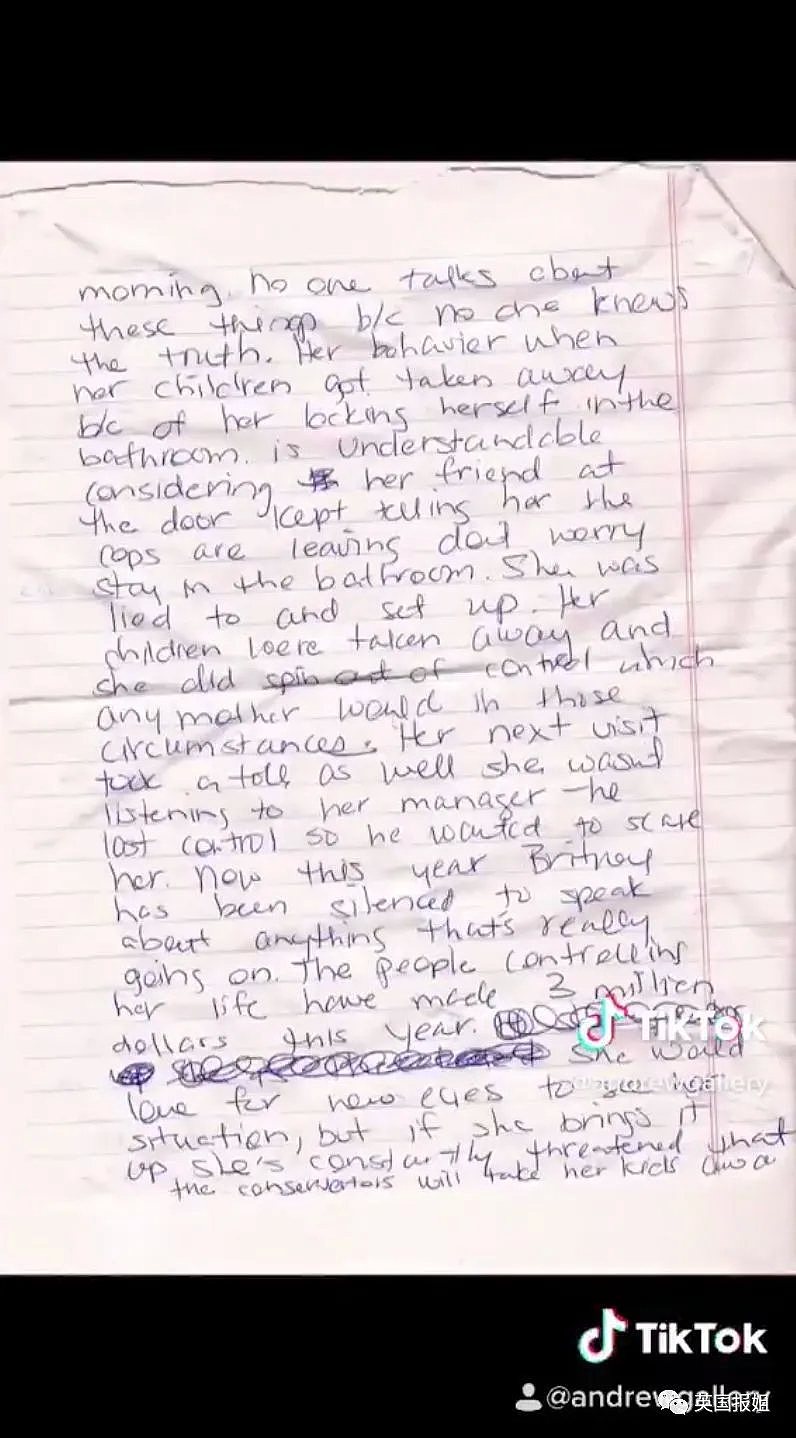 morning. no one talks about
these things b/c no one knows
the truth. Her behavier when
her children got taken away
b/c of her locking herself in the
bathroom. is understandable
considering her friend at
the door kept telling her the
cops are leaving dont worry
stay in the bathroom. She was
lied to and set up. Her
children were taken away and
she did spin out of control which
any mother would in those
circumstances. Her next visit
took a toll as well she wasnt
listening to her manager - he
lost control so he wanted to scare
her. Now this year Britney
has been silenced to speak
about anything that's really
going on. The people controlling
her life have made 3 million
dollars this year.
TikTok
She would
@andrewgallery
love for new eyes to see her
situation, but if she brings it
up she's constantly threatened that
the conservators will take her kids awa
TikTok
@andrewgallery
英国报姐